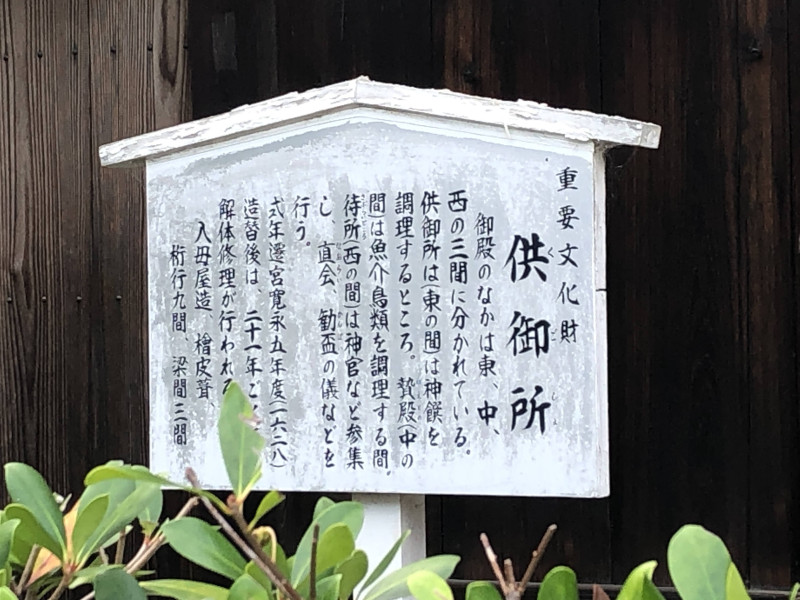 重要文化財
供御所
御殿のなかは東、中、
西の三間に分かれている。
供御所は(東の間)は神饌を
調理するところ。贄殿(中の
間)は魚介鳥類を調理する間。
侍所(西の間)は神官など参集
し、直会、勧盃の儀などを
行う。
式年遷宮寛永五年度(一六二八)
造替後は、二十一年ごと
解体修理が行われる
入母屋造、檜皮葺、
桁行九間、梁間三間